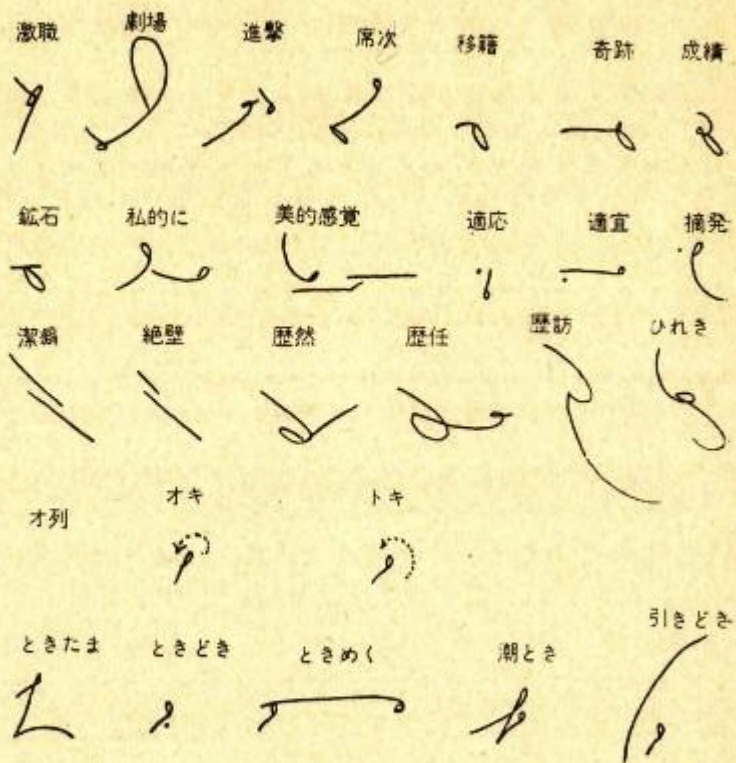 激職 劇場 進撃 席次 移籍 奇跡 成績
鉱石 私的に 美的感覚 適応 適宜 摘発
潔癖 絶壁 歴然 歴任 歴訪 ひれき
オ列 オキ トキ
ときたま ときどき ときめく 潮とき 引きどき